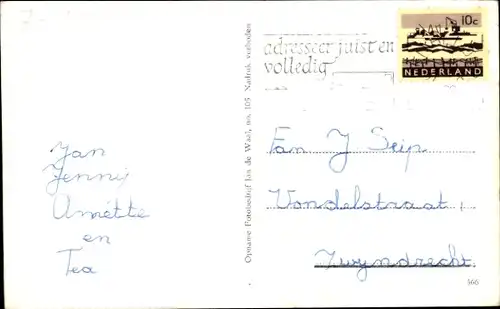 Jan
Jenny
Anette
en
Tea
Opname Fotobedrijf Jan de Waal, no. 105 Nadruk verboden
adresseer juist en
volledig
10c
NEDERLAND
Fam J Seip
Vondelstraat 1
Zwyndrecht
366